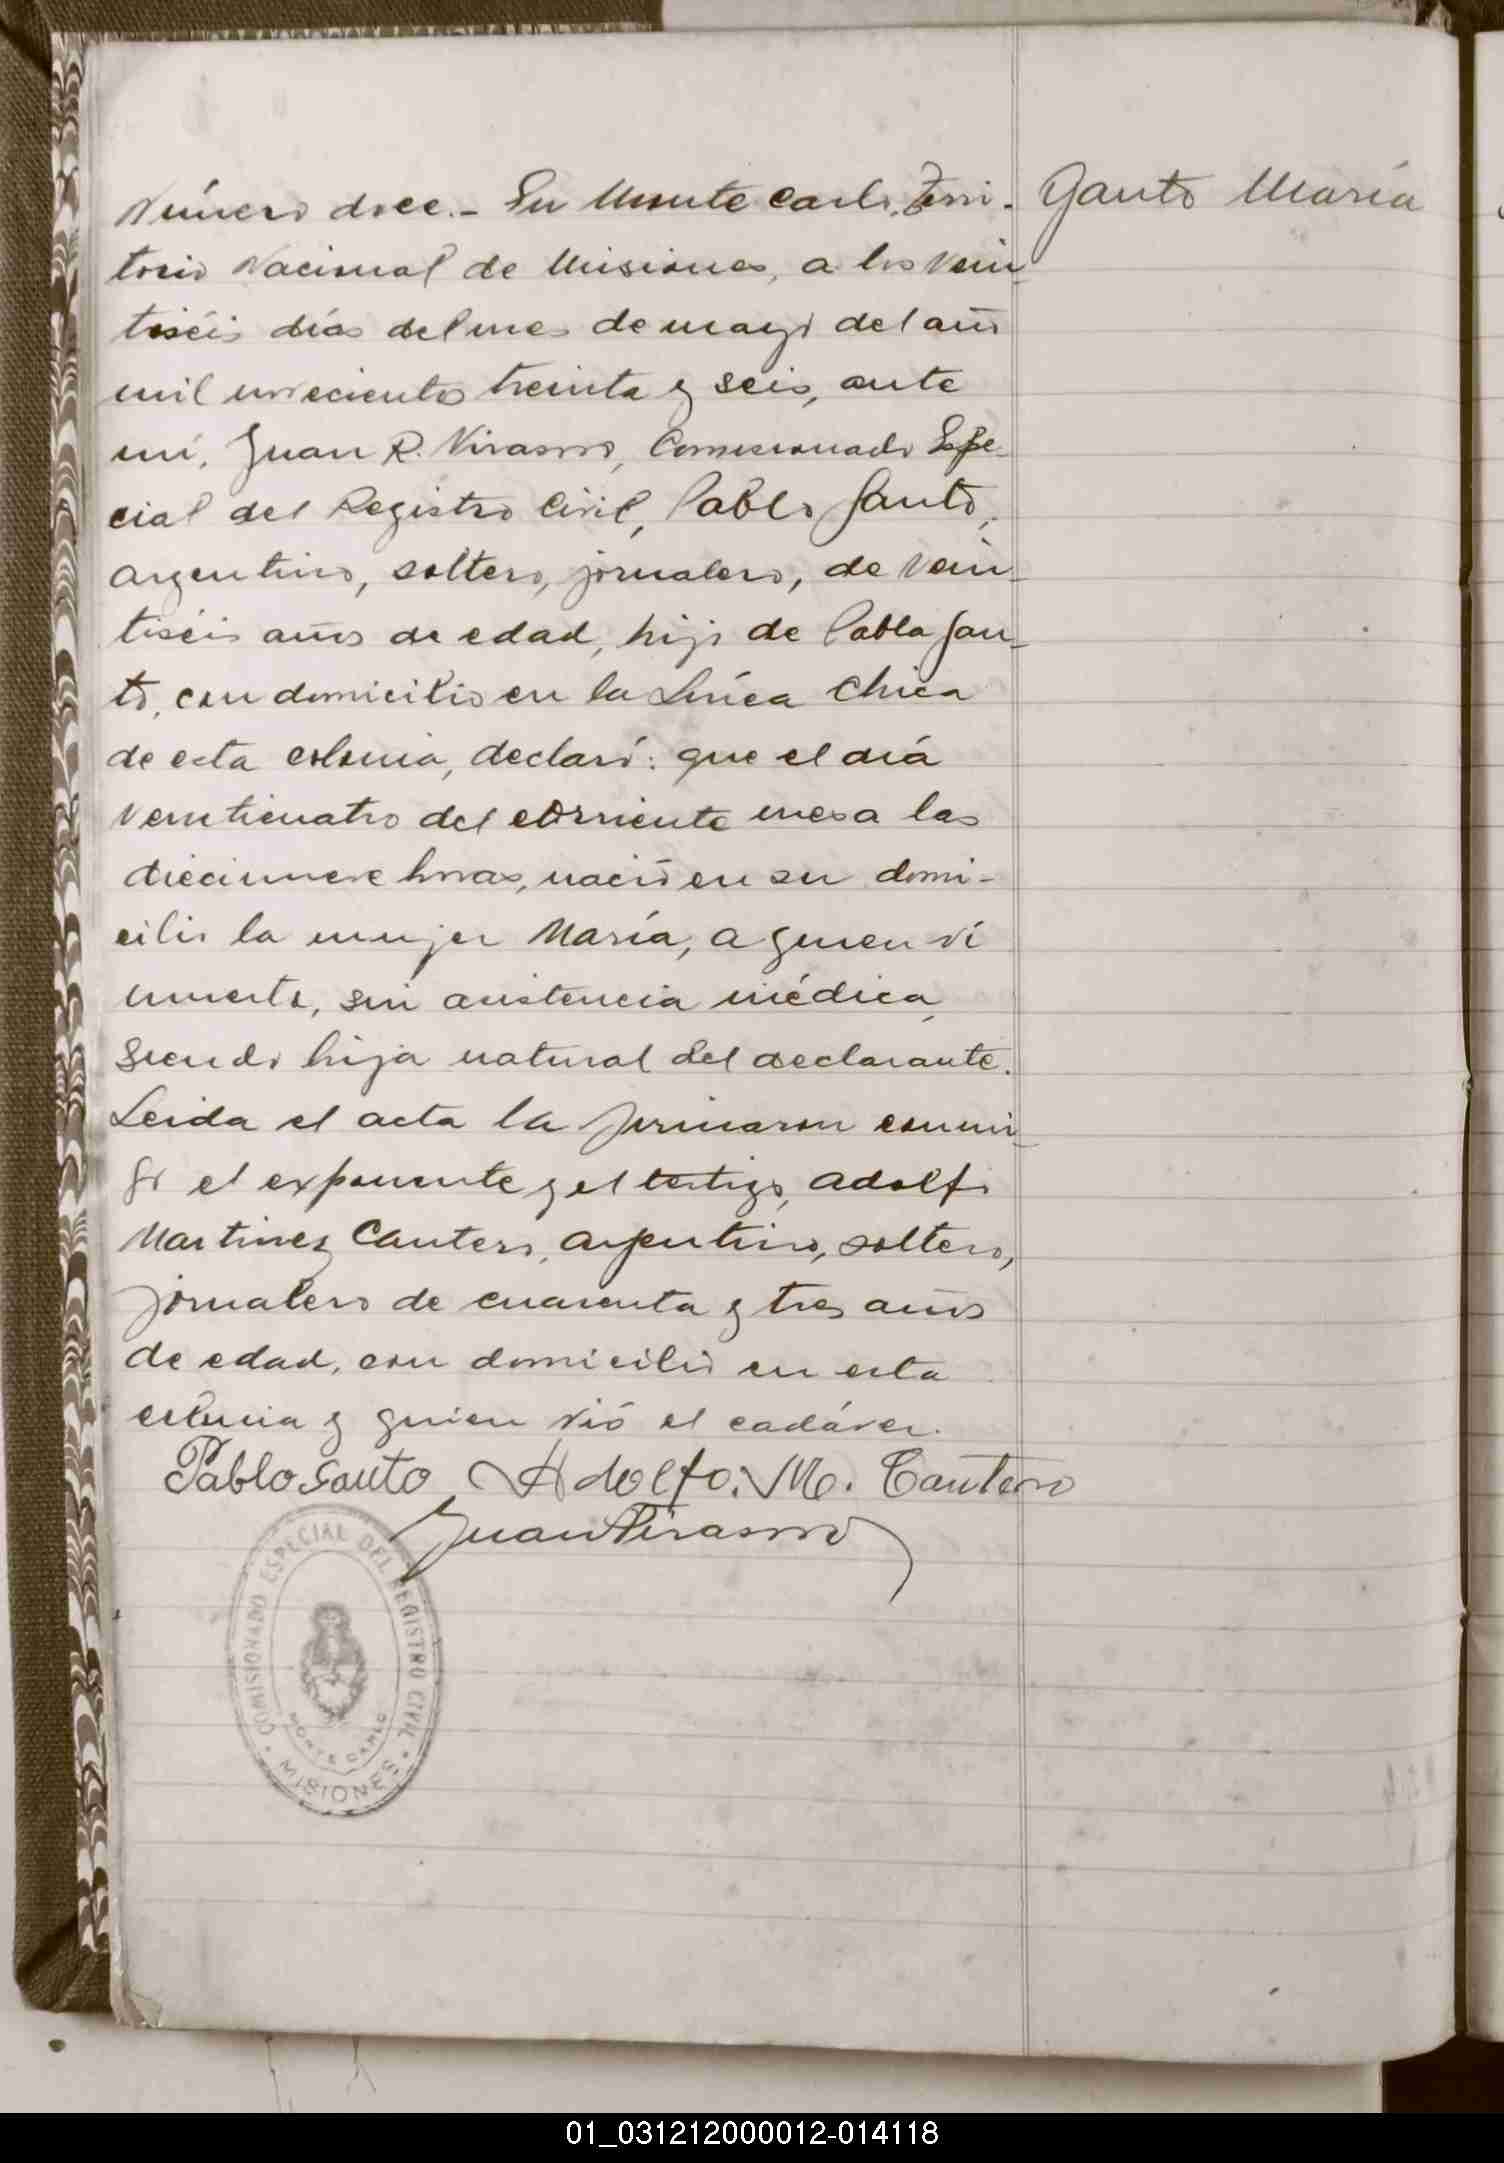 Número doce.- En Monte Carlo, Terri-
torio Nacional de Misiones, a los vein-
tiséis días del mes de mayo del año
mil novecientos treinta y seis, ante
mí, Juan R. Virasoro, Comisionado Espe-
cial del Registro Civil, Pablo Gauto,
argentino, soltero, jornalero, de vein-
tiséis años de edad, hijo de Pabla Gau-
to, con domicilio en la Línea Chica
de esta colonia, declaró: que el día
veinticuatro del corriente mes a las
diecinueve horas, nació en su domi-
cilio la mujer María, a quien ví
muerta, sin asistencia médica,
siendo hija natural del declarante.
Leida el acta la firmaron conmi-
go el exponente y el testigo, Adolfo
Martinez Cantero, argentino, soltero,
jornalero de cuarenta y tres años
de edad, con domicilio en esta
colonia y quien vió el cadáver.
Pablo Gauto Adolfo. M. Cantero
Juan Virasoro
COMISIONADO ESPECIAL DEL REGISTRO CIVIL
MONTE CARLO
MISIONES
Gauto María
01_031212000012-014118